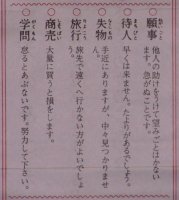 願事 他人の助けをうけて望みごとはかない
ます。急がぬことです。
待人 早くは来ません。たよりがあるでしょう。
失物 手近にありますが、中々見つかりませ
ん。
旅行 旅先で遠くへ行かない方がよいでしょ
う。
商売 大量に買うと損をします。
学問 怠るとあぶないです。努力して下さい。